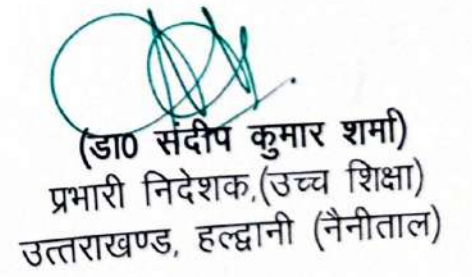 (डा0 संदीप कुमार शर्मा)
प्रभारी निदेशक,(उच्च शिक्षा)
उत्तराखण्ड, हल्द्वानी (नैनीताल)